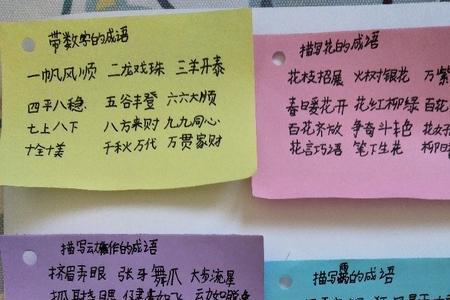 带数字的成语
一帆风顺 二龙戏珠 三羊开泰
四平八稳 五谷丰登 六六大顺
七上八下 八方来财 九九同心
十全十美 千秋万代 万贯家财
描写花的成语
花枝招展 火树银花 万紫
春暖花开 花红柳绿 百花
百花齐放 争奇斗艳 花好
花言巧语 笔下生花 柳暗
描写动作的成语
挤眉弄眼 张牙舞爪 大步流星
抓耳挠腮 健步如飞
描写 的成语